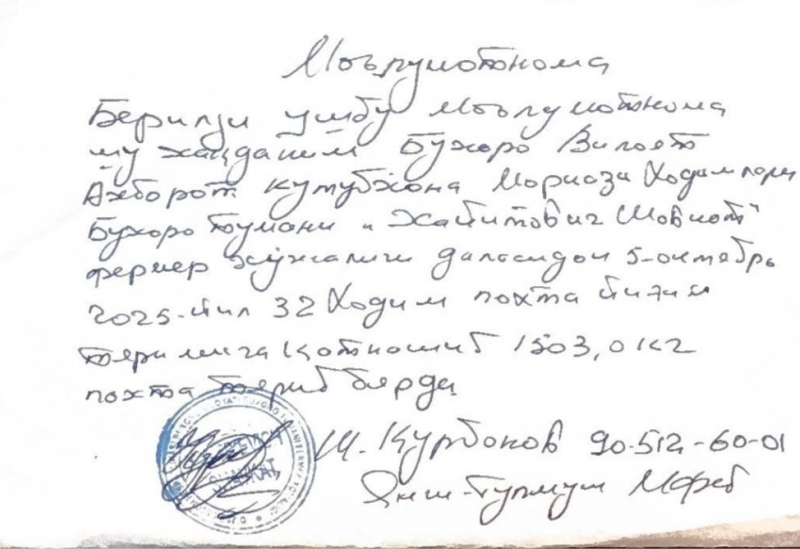 Маълумотнома
Берилди ушбу маълумотнома
шу хақдаким Бухоро Вилоят
Ахборот кутубхона Маркази Ходимлари
Бухоро тумани "Хабитович Шовкат"
фермер хўжалиги даласидан 5-октябрь
2025-йил 32 Ходим пахта йиғим
теримига қатнашиб 1503,0 кг
пахта териб берди
Ш. Курбонов 90-512-60-01